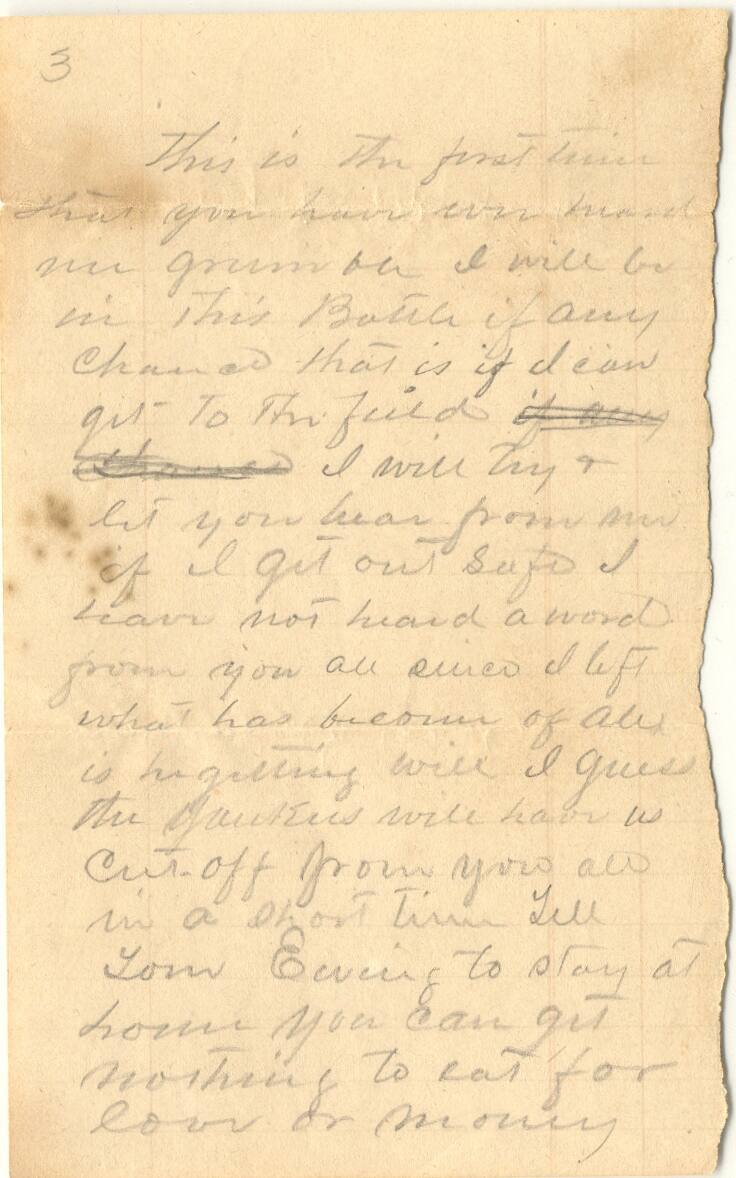 3
This is the first time
that you have ever heard
me grumble I will be
in this Battle if any
Chance that is if I can
get to the field if any
Chance I will try &
let you hear from me
if I get out safe I
have not heard a word
from you all since I left
what has become of Alex
is he getting well I guess
the Yankees will have us
Cut off from you all
in a short time Tell
Tom Ewing to stay at
home you can get
nothing to eat for
love or money